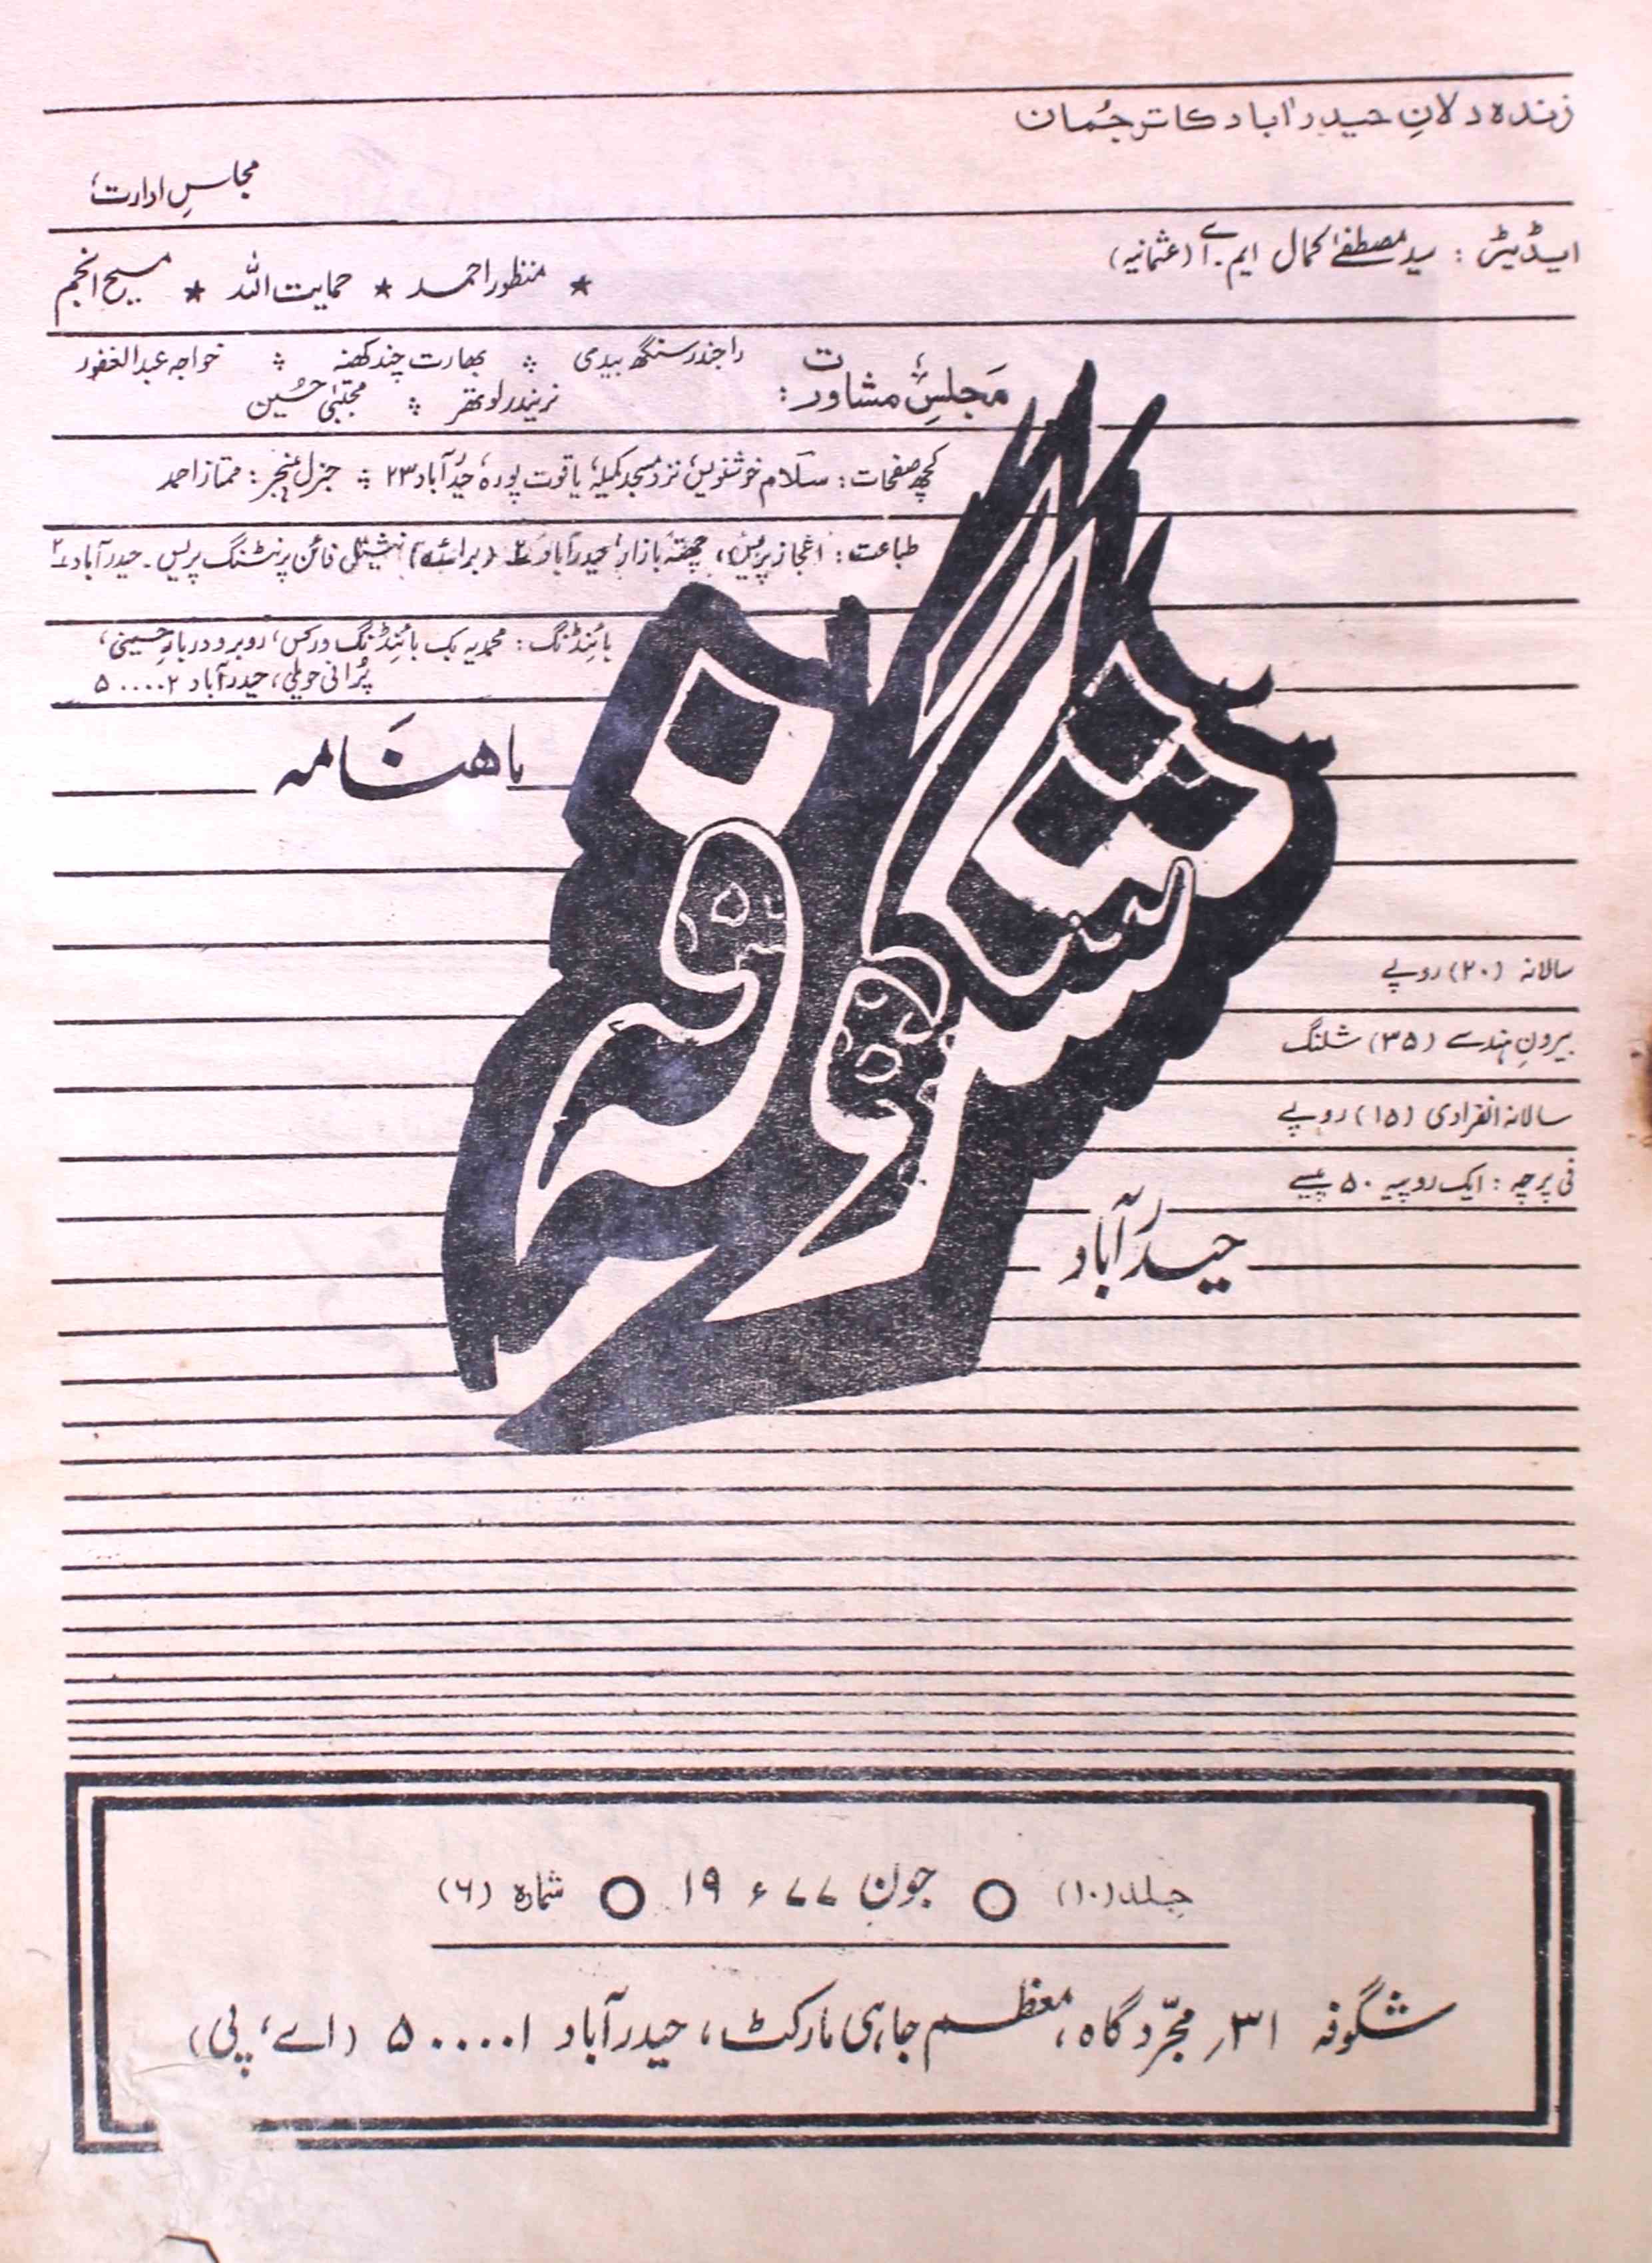 زندہ دلانِ حیدرآباد کا ترجُمان
مجلسِ ادارت؛
ایڈیٹر : سید مصطفےٰ کمال ایم۔اے (عثمانیہ)
★ منظور احمد ★ حمایت اللہ ★ مسیح انجم
مَجلسِ مشاورت : راجندر سنگھ بیدی ⁘ بھارت چند کھنہ ⁘ خواجہ عبدالغفور
نریندر لوتھر ⁘ مجتبیٰ حُسین
کچھ صفحات : سلام خوشنویس، نزد مسجد کمیلہ، یاقوت پورہ، حیدرآباد ۲۳ ⁘ جنرل منیجر : ممتاز احمد
طباعت : اعجاز پریس، چھتہ بازار، حیدرآباد ۲ (برائے) نیشنل فائن پرنٹنگ پریس۔ حیدرآباد ۲
بائنڈنگ : محمدیہ بک بائنڈنگ ورکس، روبرو دربارِ حسینی،
پُرانی حویلی، حیدرآباد ۵۰۰۰۰۲
ماهنَامه
شگوفہ
حیدرآباد
سالانہ (۲۰) روپے
بیرونِ ہند سے (۳۵) شلنگ
سالانہ انفرادی (۱۵) روپے
فی پرچہ : ایک روپیہ ۵۰ پیسے
جلد (۱۰) ○ جون ۱۹۷۷ء ○ شمارہ (۶)
شگوفہ ۳۱؍ مجرّدگاہ، معظم جاہی مارکٹ، حیدرآباد ۵۰۰۰۰۱ (اے، پی)